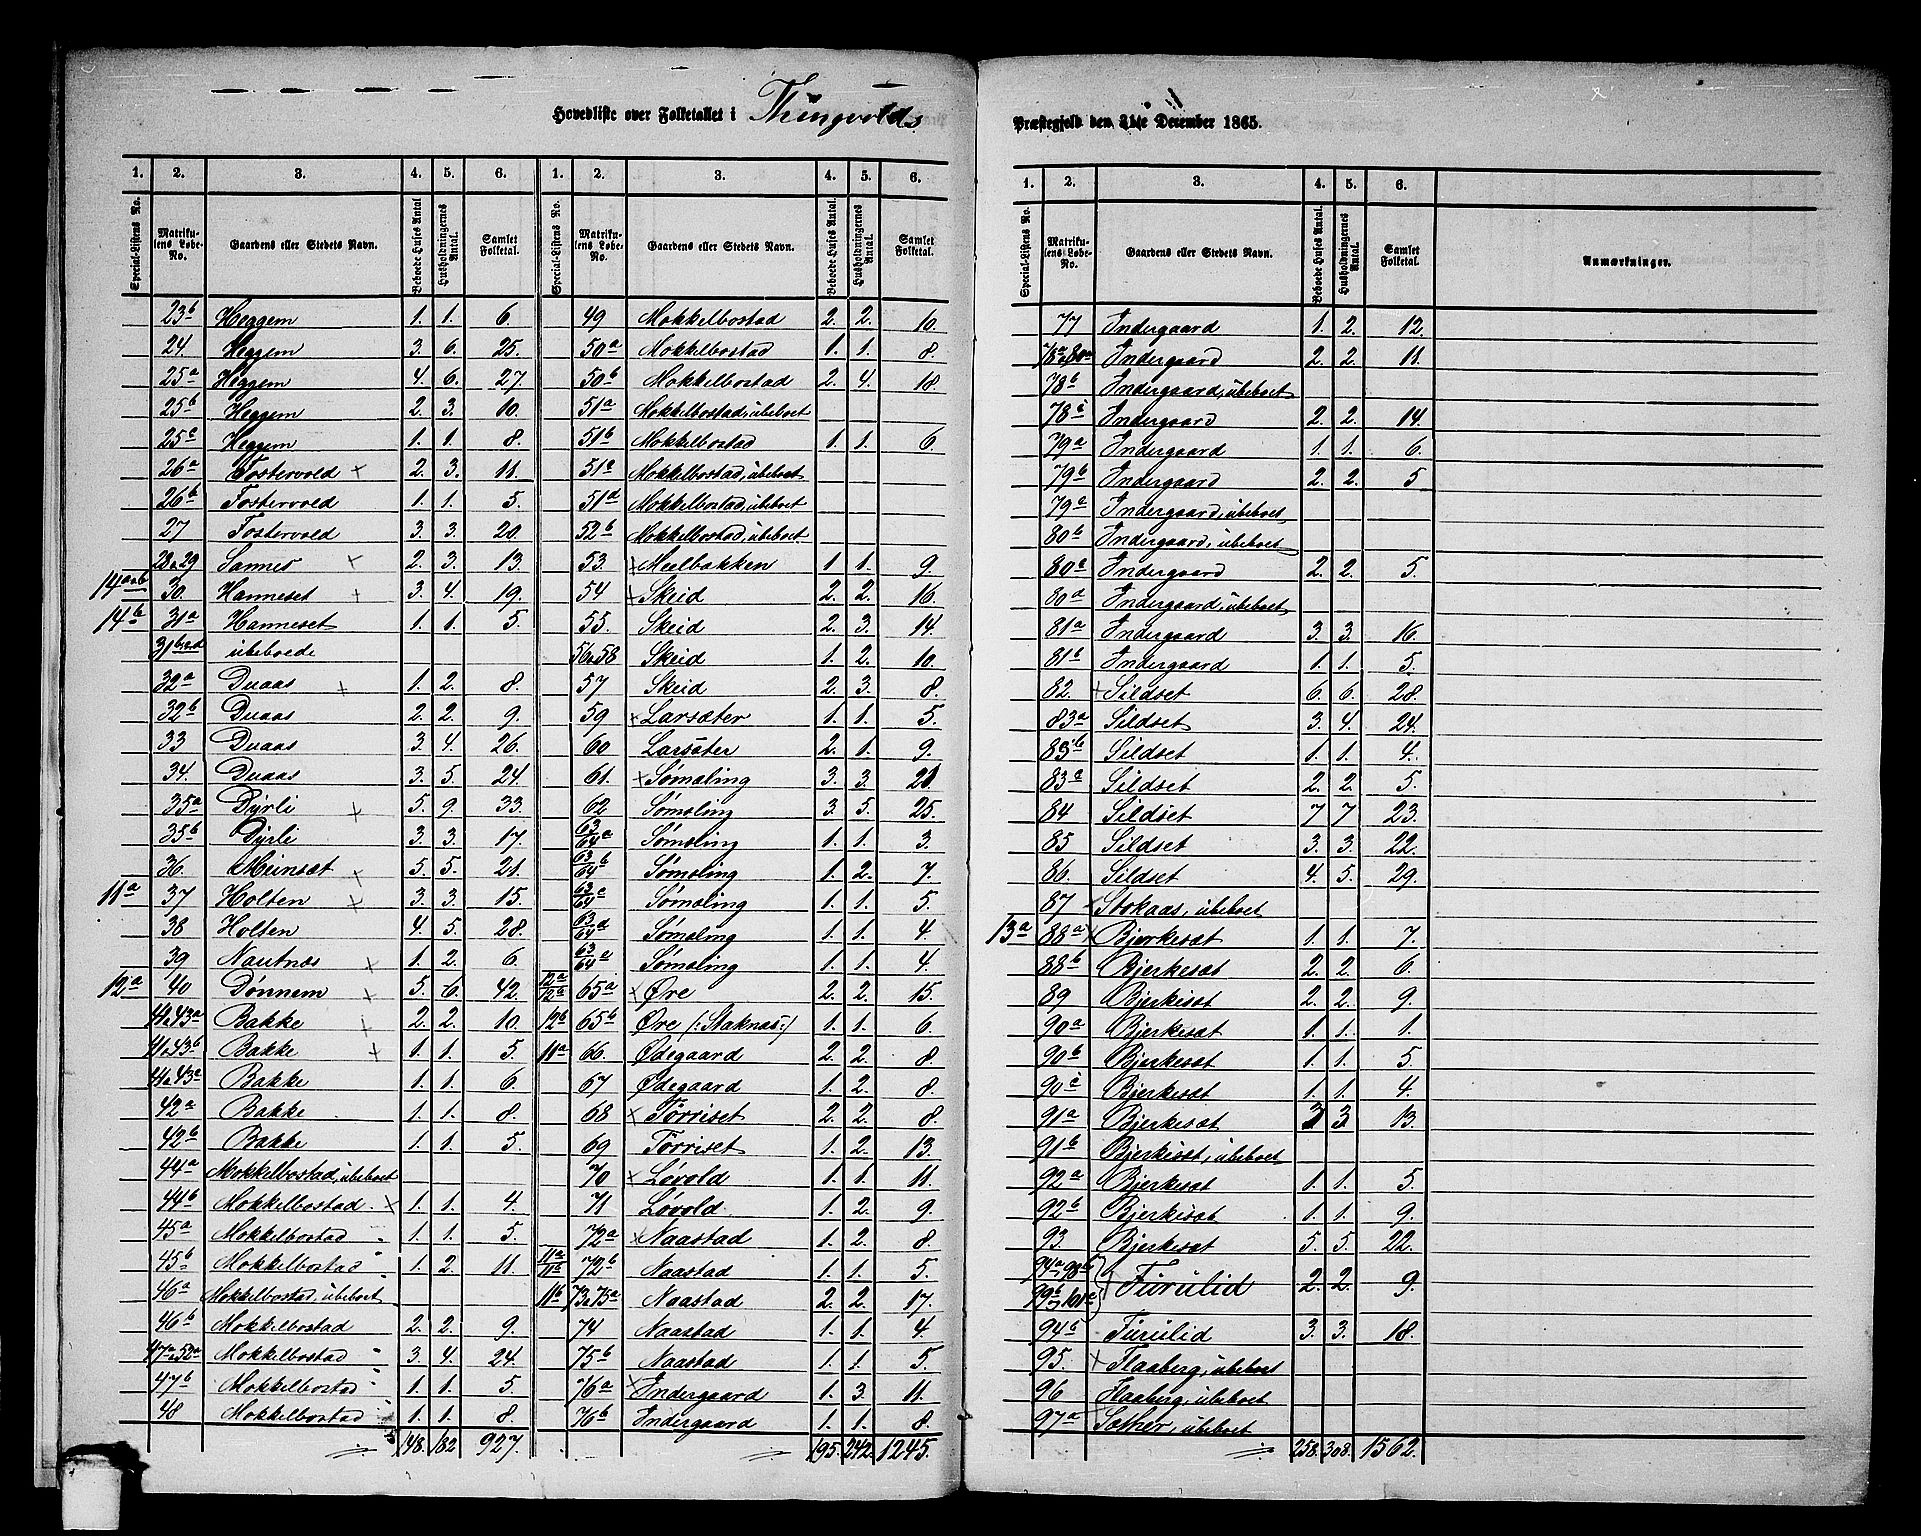 Hovedliste over Folketallet i Thingvolds
Præstegjeld den 31te December 1865.
1. 2. 3. 4. 5. 6. 1. 2. 3. 4. 5. 6.
Special-Listens No. Matrikulens Løbe-No. Gaardens eller Stedets Navn. Beboede Huses Antal Husholdningernes Antal. Samlet Folketal. Special-Listens No. Matrikulens Løbe-No. Gaardens eller Stedets Navn. Beboede Huses Antal. Husholdningernes Antal. Samlet Folketal.
23b Heggem 1. 1. 6.
24. Heggem 3. 6. 25.
25a Heggem 4. 6. 27.
25b Heggem 2. 3. 10.
25c Heggem 1. 1. 8.
26a Fostervold + 2. 3. 11.
26b Fostervold 1. 1. 5.
27 Fostervold 3. 3. 20.
28&29 Sannes + 2. 3. 13.
14a&b 30. Hanneset + 3. 4. 19.
14b 31a Hanneset 1. 1. 5.
31b,c&d ubeboede
32a Duaas + 1. 2. 8.
32b Duaas 2. 2. 9.
33 Duaas 3. 4. 26.
34. Duaas 3. 5. 24.
35a Dyrli + 5. 9. 33.
35b Dyrli 3. 3. 17.
36. Meinsæt + 5. 5. 21.
11a 37 Holten + 3. 3. 15.
38 Holten 4. 5. 28.
39 Nautnæs + 1. 2. 6.
12a 40 Dønnem + 5. 6. 42.
41&43a Bakke + 2. 2. 10.
41&43b Bakke + 1. 1. 5.
41&43c Bakke 1. 1. 6.
42a Bakke 1. 1. 8.
42b Bakke 1. 1. 5.
44a Mokkelbostad, ubeboet
44b Mokkelbostad + 1. 1. 4.
45a Mokkelbostad 1. 1. 5.
45b Mokkelbostad 1. 2. 11.
46a Mokkelbostad, ubeboet
46b Mokkelbostad 2. 2. 9.
47a&52a Mokkelbostad 3. 4. 24.
47b Mokkelbostad 1. 1. 5.
48 Mokkelbostad 1. 1. 8.
148. 182 927.
49 Mokkelbostad 2. 2. 10.
50a Mokkelbostad 1. 1. 8.
50b Mokkelbostad 2. 4. 18.
51a Mokkelbostad, ubeboet
51b Mokkelbostad 1. 1. 6.
51c Mokkelbostad, ubeboet
51d Mokkelbostad, ubeboet
52b Mokkelbostad, ubeboet
53. + Meelbakken 1. 1. 9.
54 + Skeid 2. 2. 16.
55. Skeid 2. 3. 14.
56&58 Skeid 1. 2. 10.
57 Skeid 2. 3. 8.
59 + Larsæter 1. 1. 5.
60 Larsæter 2. 1. 9.
61. + Sømoling 3. 3. 21.
62 Sømoling 3. 5. 25.
63/64a Sømoling 1. 1. 3.
63/64b Sømoling 1. 2. 7.
63/64c Sømoling 1. 1. 5.
63/64d Sømoling 1. 1. 4.
63/64e Sømoling 1. 1. 4.
12a/12a 65a + Øre 2. 2. 15.
12b 65b Øre (:Staknæs:) 1. 1. 6.
11a 66. Ødegaard 2. 2. 8.
67 Ødegaard 1. 2. 8.
68 + Torriset 2. 2. 8.
69 Torriset 1. 2. 13.
70 + Løvold 1. 1. 11.
71 Løvold 1. 2. 9.
72a + Naastad 1. 2. 8.
11a/11b 72b Naastad 1. 1. 5.
11b 73&75a Naastad 2. 2. 17.
74 Naastad 1. 1. 4.
75b Naastad 1. 1. 5.
76a + Indergaard 1. 3. 11.
76b Indergaard 1. 1. 8.
195. 242. 1245.
1. 2. 3. 4. 5. 6.
Special-Listens No. Matrikulens Løbe-No. Gaardens eller Stedets Navn. Beboede Huses Antal. Husholdningernes Antal. Samlet Folketal. Anmærkninger.
77 Indergaard 1. 2. 12.
78a&80a Indergaard 2. 2. 11.
78b Indergaard, ubeboet
78c Indergaard 2. 2. 14.
79a Indergaard 1. 1. 6.
79b Indergaard 2. 2. 5
79c Indergaard, ubeboet
80b Indergaard, ubeboet
80c Indergaard 2. 2. 5.
80d Indergaard, ubeboet
81a Indergaard 3. 3. 16.
81b Indergaard 1. 1. 5.
82. + Sildset 6. 6. 28.
83a Sildset 3. 4. 24.
83b Sildset 1. 1. 4.
83c Sildset 2. 2. 5.
84 Sildset 7 7 23.
85 Sildset 3. 3. 22.
86. Sildset 4. 5. 29.
87 Stokaas, ubeboet
13a 88a + Bjerkesæt 1. 1. 7.
88b Bjerkesæt 2. 2. 6.
89 Bjerkesæt 2. 2. 9.
90a Bjerkesæt 1. 1. 1.
90b Bjerkesæt 1. 1. 5.
90c Bjerkesæt 1. 1. 4.
91a Bjerkesæt 3 3 13.
91b Bjerkesæt, ubeboet
92a Bjerkesæt 1. 1. 5.
92b Bjerkesæt 1. 1. 9.
93. Bjerkesæt 5. 5. 22.
94a, 98b
99b, 101a Furulid 2. 2. 9.
94b Furulid 3. 3. 18.
95. + Flaaberg, ubeboet
96 Flaaberg, ubeboet
97a Sæther, ubeboet
258. 308. 1562.